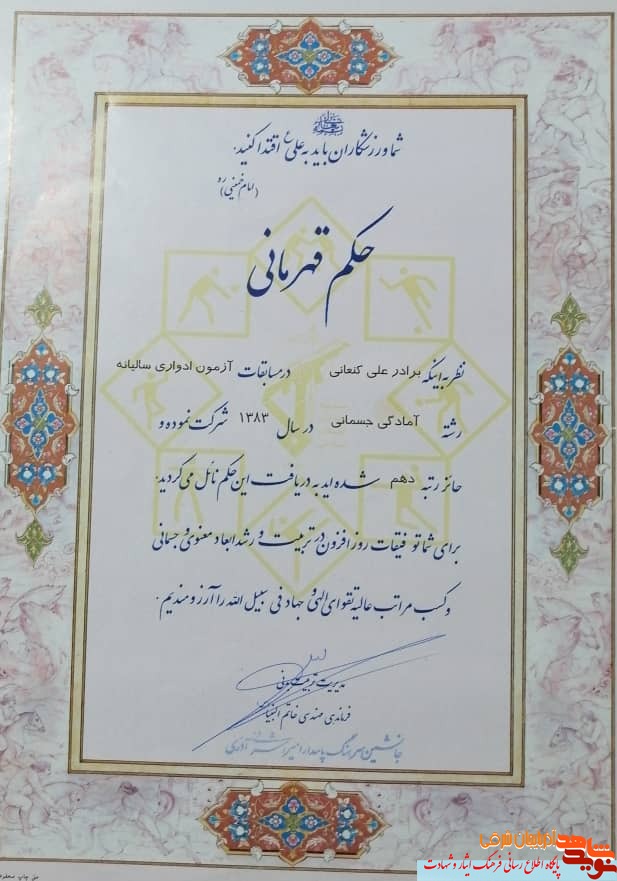 بسمه تعالی
شما ورزشکاران باید به علی ع اقتدا کنید.
(امام خمینی ره)
حکم قهرمانی
نظر به اینکه برادر علی کنعانی در مسابقات آزمون ادواری سالیانه
رشته آمادگی جسمانی در سال ۱۳۸۳ شرکت نموده و
حائز رتبه دهم شده اید به دریافت این حکم نائل می گردید.
برای شما توفیقات روز افزون در تربیت و رشد ابعاد معنوی و جسمانی
و کسب مراتب عالیه تقوای الهی و جهاد فی سبیل الله را آرزومندیم.
مدیریت تربیت بدنی
فرماندهی مهندسی خاتم الانبیاء
جانشین سرهنگ پاسدار امیر آذری
نوید شاهد آذربایجان شرقی
پایگاه اطلاع رسانی فرهنگ ایثار و شهادت